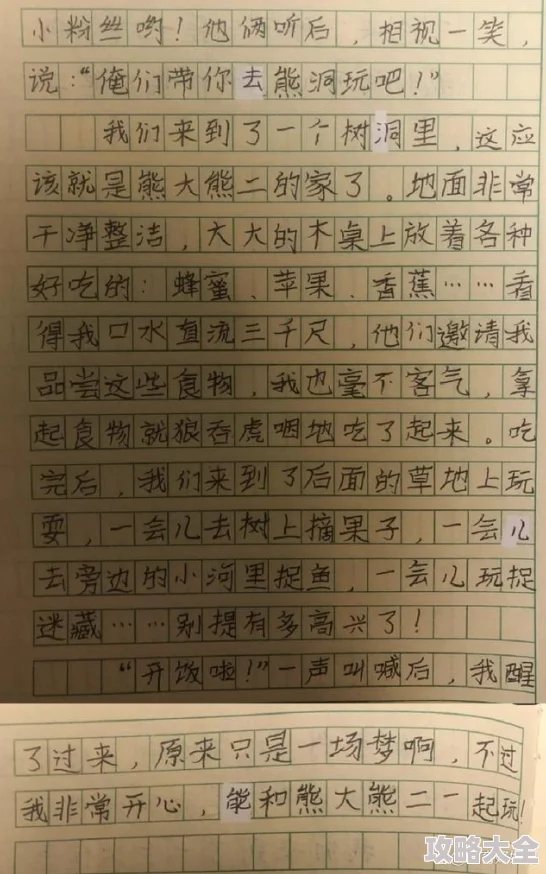 小粉丝哟！他俩听后，相视一笑，
说：“俺们带你去熊洞玩吧！”
我们来到了一个树洞里，这应
该就是熊大熊二的家了。地面非常
干净整洁，大大的木桌上放着各种
好吃的：蜂蜜、苹果、香蕉……看
得我口水直流三千尺，他们邀请我
品尝这些食物，我也毫不客气，拿
起食物就狼吞虎咽地吃了起来。吃
完后，我们来到了后面的草地上玩
耍，一会儿去树上摘果子，一会儿
去旁边的小河里捉鱼，一会儿玩捉
迷藏……别提有多高兴了！
“开饭啦！”一声叫喊后，我醒
了过来，原来只是一场梦啊，不过
我非常开心，能和熊大熊二一起玩！
攻略大全